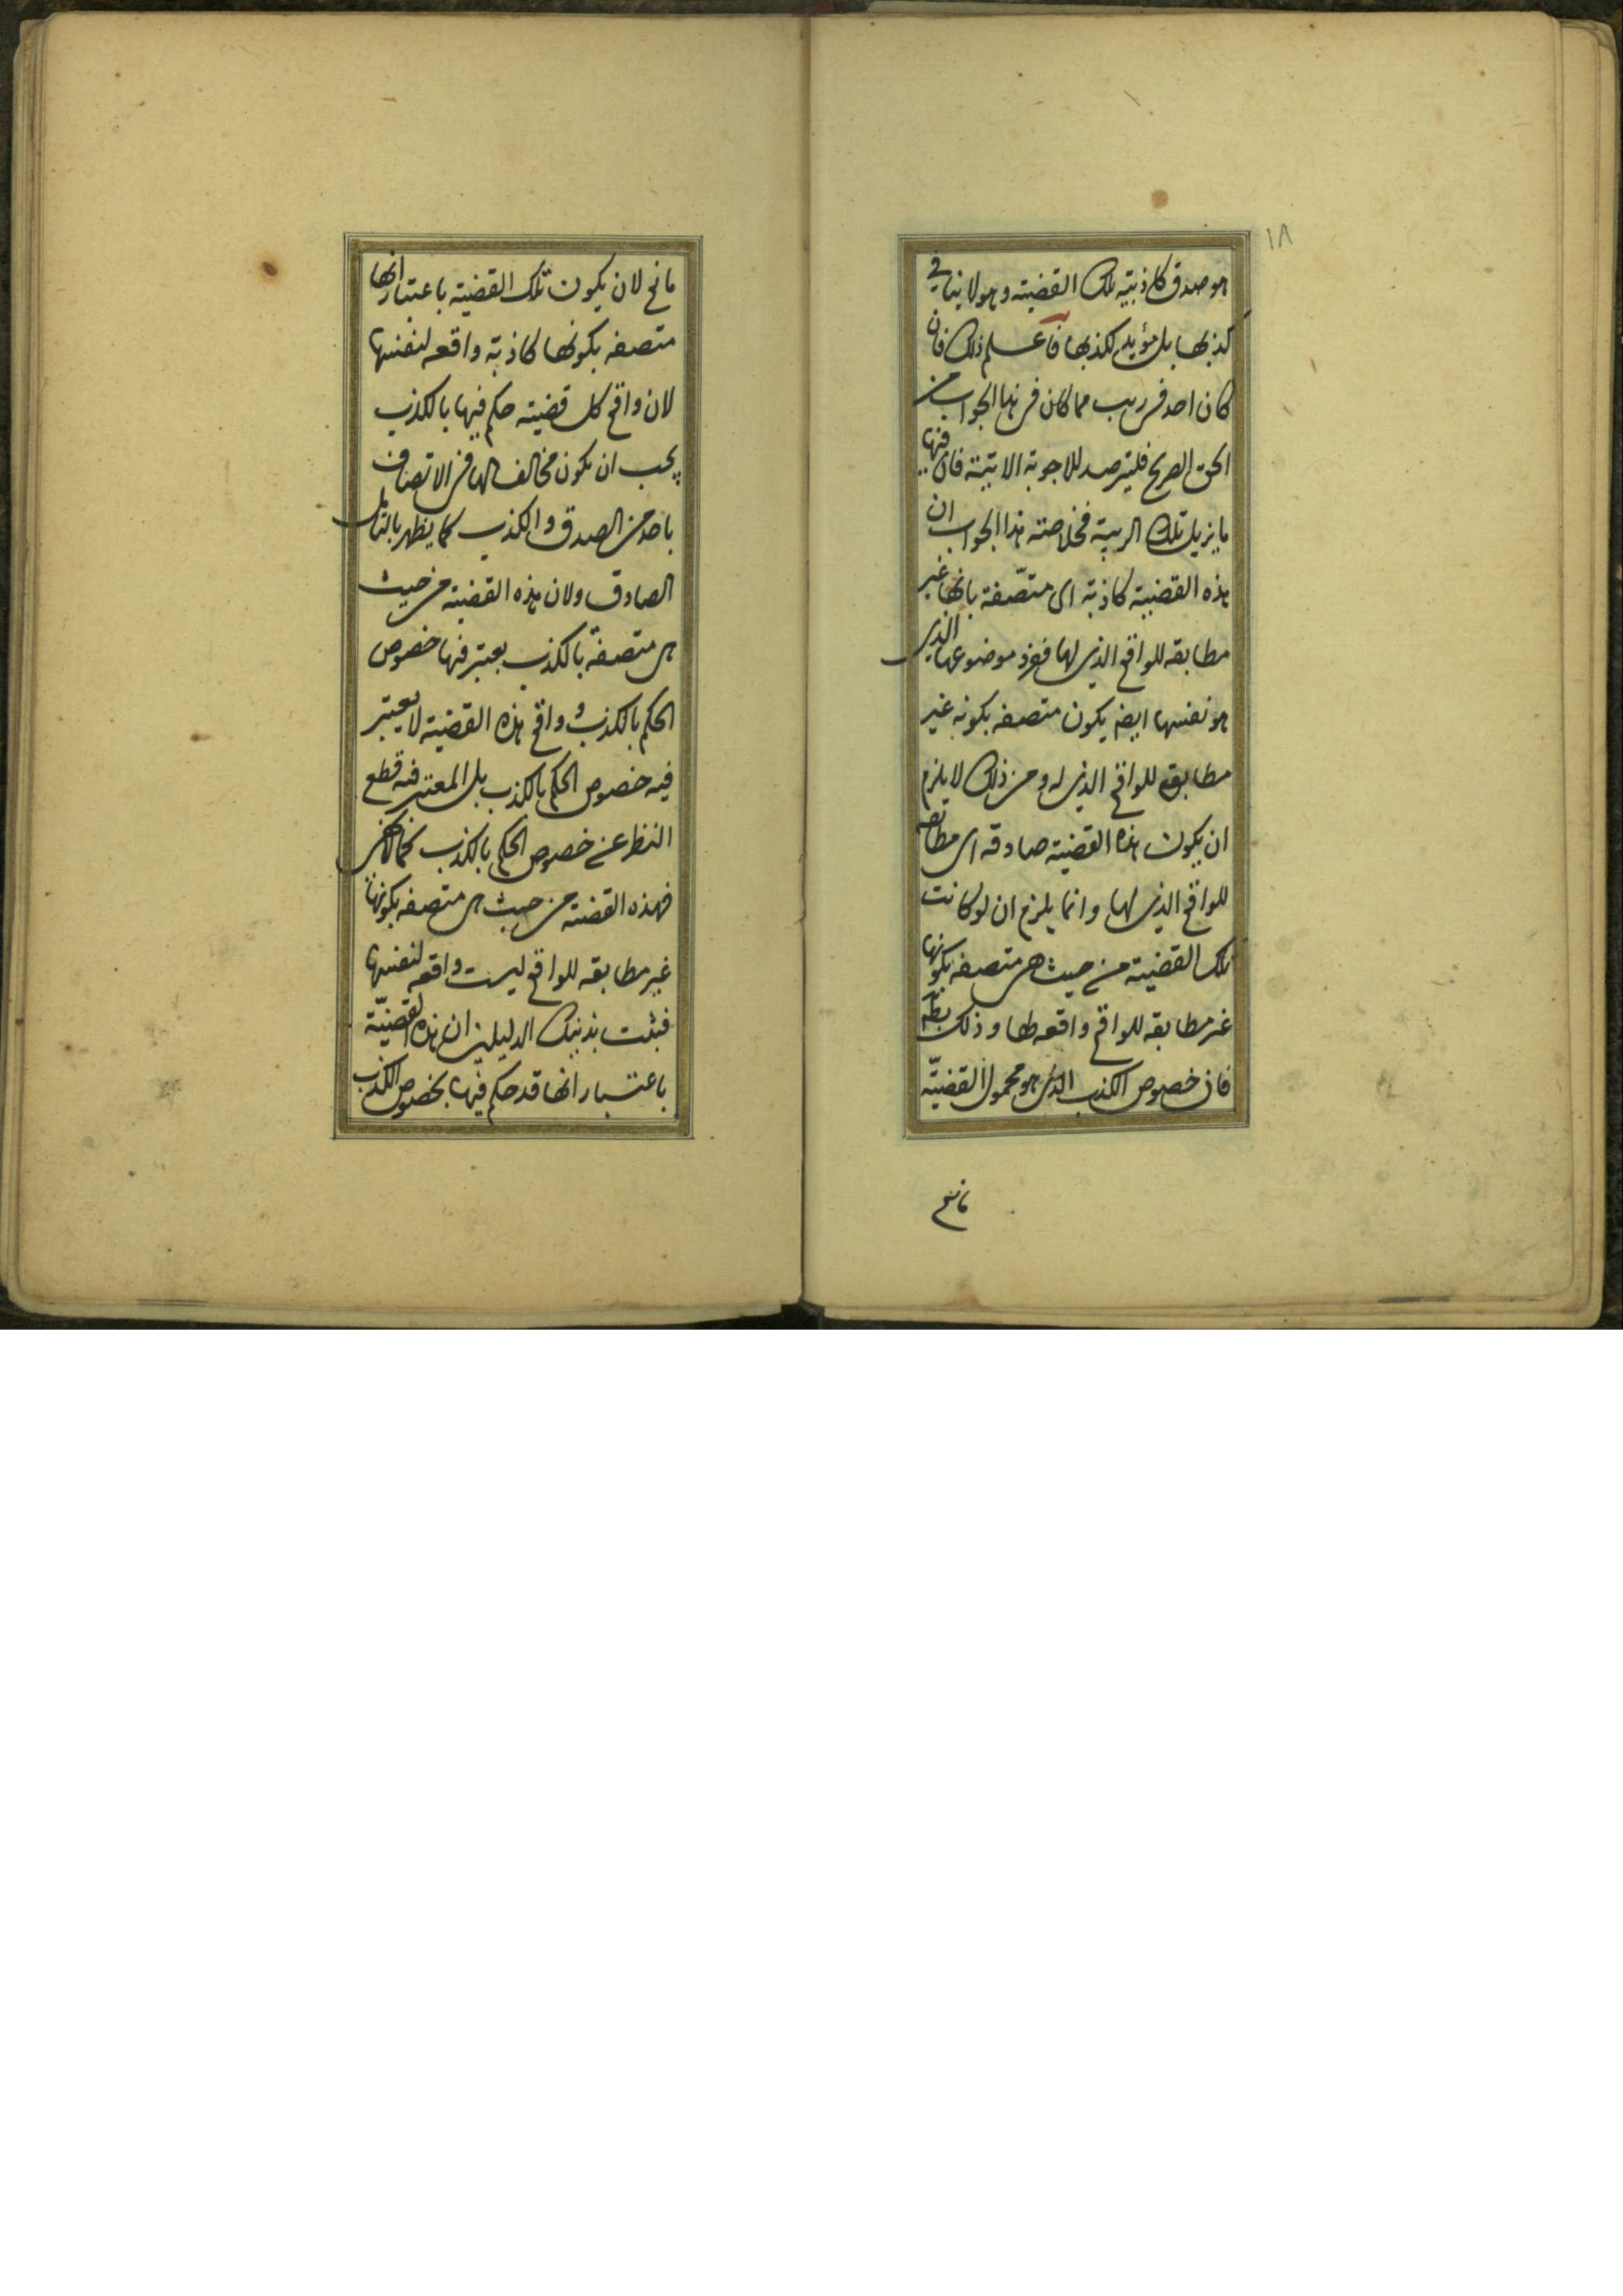 ١٨
هو صدق كاذبية تلك القضيته وهو لا ينافي
كذبها بل مؤيد لكذبها فاعلم ذلك فان
كان احد فى ريب مما كان فى هذا الجواب من
الحق الصريح فليترصد للاجوبة الاتية فان فيها
ما يزيل تلك الريبة فخلاصته هذا الجواب ان
هذه القضية كاذبة اى متّصفة بانها غير
مطابقه للواقع الذى لها ففرد موضوعها الذى
هو نفسها ايضا يكون متصفه بكونه غير
مطابقه للواقع الذى له ومن ذلك لا يلزم
ان يكون هذه القضية صادقه اى مطابقه
للواقع الذى لها وانما يلزم ان لو كانت
تلك القضية من حيث هى متصفه بكونها
غير مطابقه للواقع واقعه لها وذلك بط
فان خصوص الكذب الذى هو محمول القضيّة
مانع
مانع لان يكون تلك القضية باعتبار انها
متصفه بكونها كاذبة واقعه لنفسها
لان واقع كل قضية حكم فيها بالكذب
يجب ان يكون مخالفا لها فى الاتصاف
باحد من الصدق والكذب كما يظهر بالتامل
الصادق ولان هذه القضية من حيث
هى متصفة بالكذب يعتبر فيها خصوص
الحكم بالكذب وواقع هذه القضية لا يعتبر
فيه خصوص الحكم بالكذب بل المعتبر فيه قطع
النظر عن خصوص الحكم بالكذب كما لا يخفى
فهذه القضية من حيث هى متصفه بكونها
غير مطابقه للواقع ليست واقعه لنفسها
فثبت بذينك الدليلين ان هذه القضيّة
باعتبار انها قد حكم فيها بخصوص الكذب